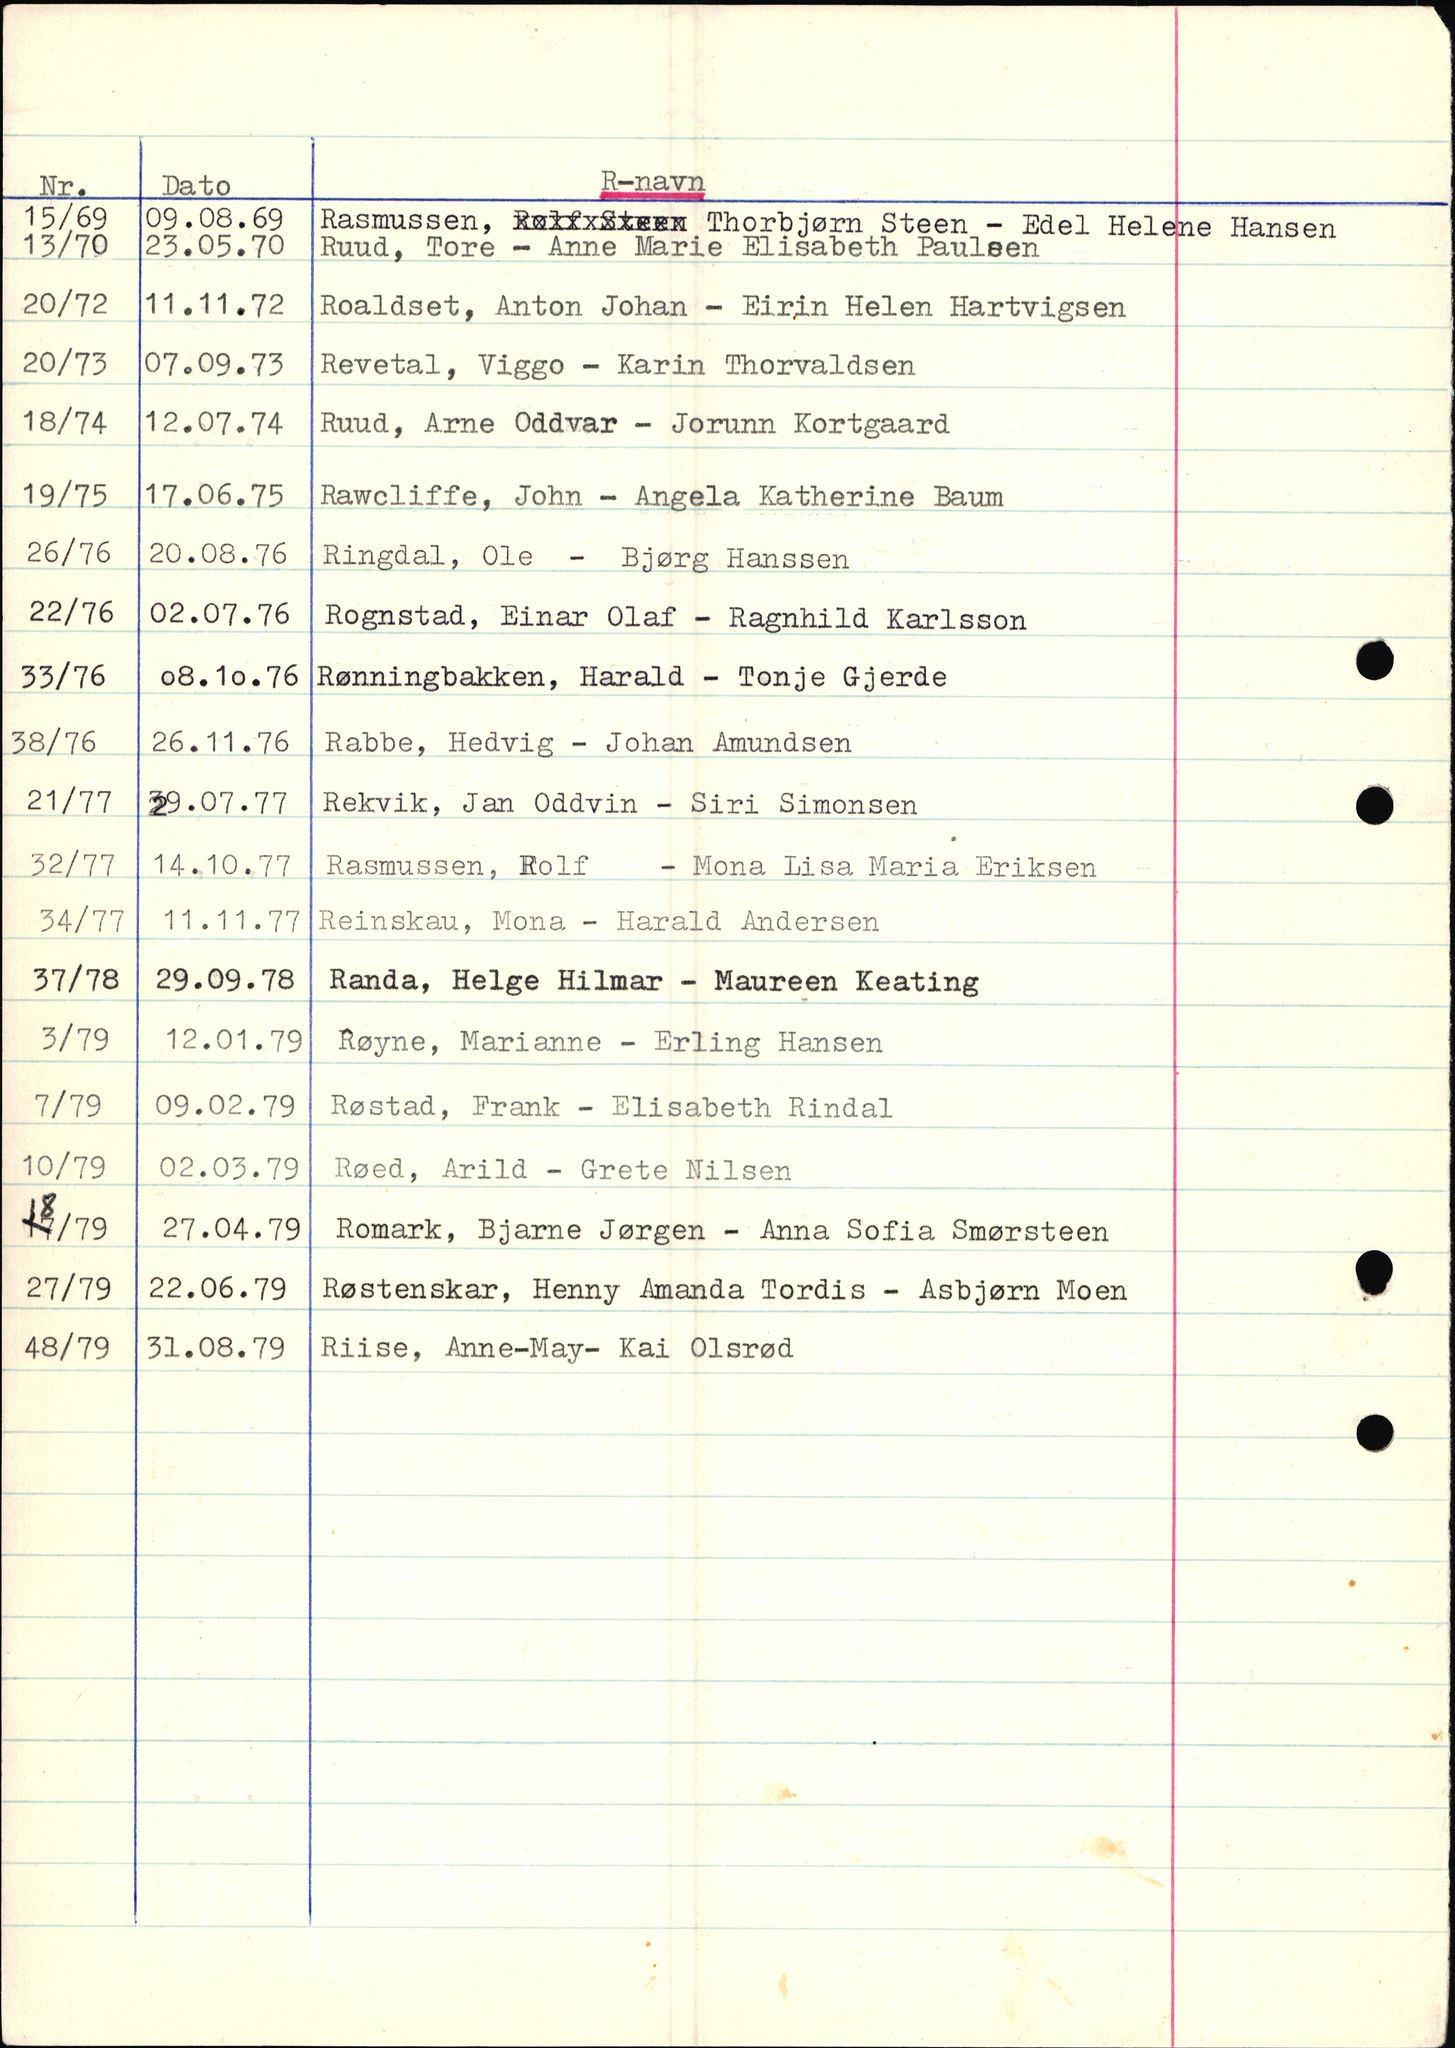 Nr. Dato R-navn
15/69 09.08.69 Rasmussen, Rolf Steen Thorbjørn Steen - Edel Helene Hansen
13/70 23.05.70 Ruud, Tore - Anne Marie Elisabeth Paulsen
20/72 11.11.72 Roaldset, Anton Johan - Eirin Helen Hartvigsen
20/73 07.09.73 Revetal, Viggo - Karin Thorvaldsen
18/74 12.07.74 Ruud, Arne Oddvar - Jorunn Kortgaard
19/75 17.06.75 Rawcliffe, John - Angela Katherine Baum
26/76 20.08.76 Ringdal, Ole - Bjørg Hanssen
22/76 02.07.76 Rognstad, Einar Olaf - Ragnhild Karlsson
33/76 o8.1o.76 Rønningbakken, Harald - Tonje Gjerde
38/76 26.11.76 Rabbe, Hedvig - Johan Amundsen
21/77 29.07.77 Rekvik, Jan Oddvin - Siri Simonsen
32/77 14.10.77 Rasmussen, Rolf - Mona Lisa Maria Eriksen
34/77 11.11.77 Reinskau, Mona - Harald Andersen
37/78 29.09.78 Randa, Helge Hilmar - Maureen Keating
3/79 12.01.79 Røyne, Marianne - Erling Hansen
7/79 09.02.79 Røstad, Frank - Elisabeth Rindal
10/79 02.03.79 Røed, Arild - Grete Nilsen
18/79 27.04.79 Romark, Bjarne Jørgen - Anna Sofia Smørsteen
27/79 22.06.79 Røstenskar, Henny Amanda Tordis - Asbjørn Moen
48/79 31.08.79 Riise, Anne-May- Kai Olsrød